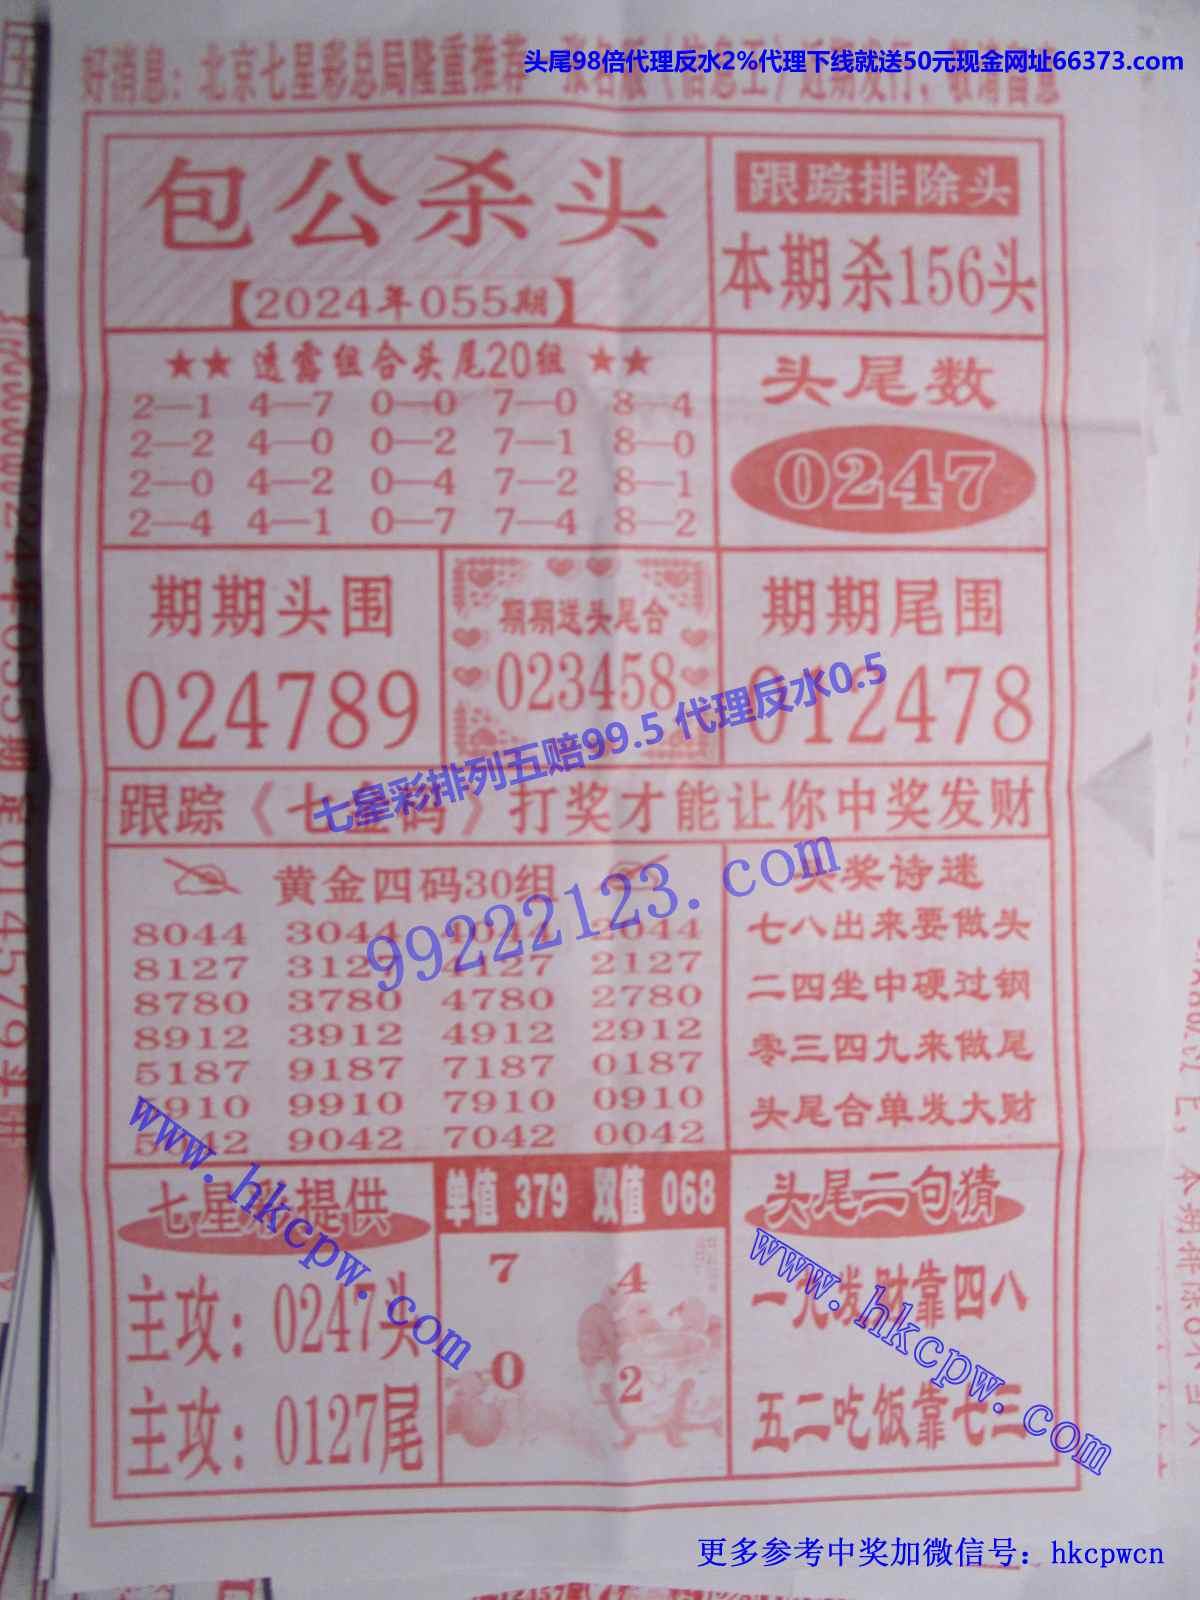 头尾98倍代理反水2%代理下线就送50元现金网址66373.com
好消息：北京七星彩总局隆重推荐
包公杀头
【2024年055期】
跟踪排除头
本期杀156头
★★ 透露组合头尾20组 ★★
2—1 4—7 0—0 7—0 8—4
2—2 4—0 0—2 7—1 8—0
2—0 4—2 0—4 7—2 8—1
2—4 4—1 0—7 7—4 8—2
头尾数
0247
期期头围
024789
期期送头尾合
023458
期期尾围
012478
七星彩排列五赔99.5 代理反水0.5
跟踪《七星码》打奖才能让你中奖发财
99222123.com
黄金四码30组
8044 3044 4044 2044
8127 3127 4127 2127
8780 3780 4780 2780
8912 3912 4912 2912
5187 9187 7187 0187
5910 9910 7910 0910
5042 9042 7042 0042
头奖诗迷
七八出来要做头
二四坐中硬过钢
零三四九来做尾
头尾合单发大财
www.hkcpw.com
七星彩提供
主攻：0247头
主攻：0127尾
单值 379 双值 068
7 4
0 2
头尾二句猜
一九发财靠四八
五二吃饭靠七三
www.hkcpw.com
更多参考中奖加微信号：hkcpwcn